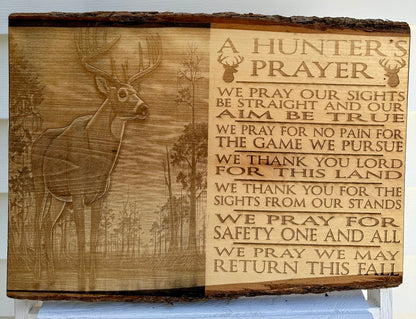 A HUNTER'S
PRAYER
WE PRAY OUR SIGHTS
BE STRAIGHT AND OUR
AIM BE TRUE
WE PRAY FOR NO PAIN FOR
THE GAME WE PURSUE
WE THANK YOU LORD
FOR THIS LAND
WE THANK YOU FOR THE
SIGHTS FROM OUR STANDS
WE PRAY FOR
SAFETY ONE AND ALL
WE PRAY WE MAY
RETURN THIS FALL